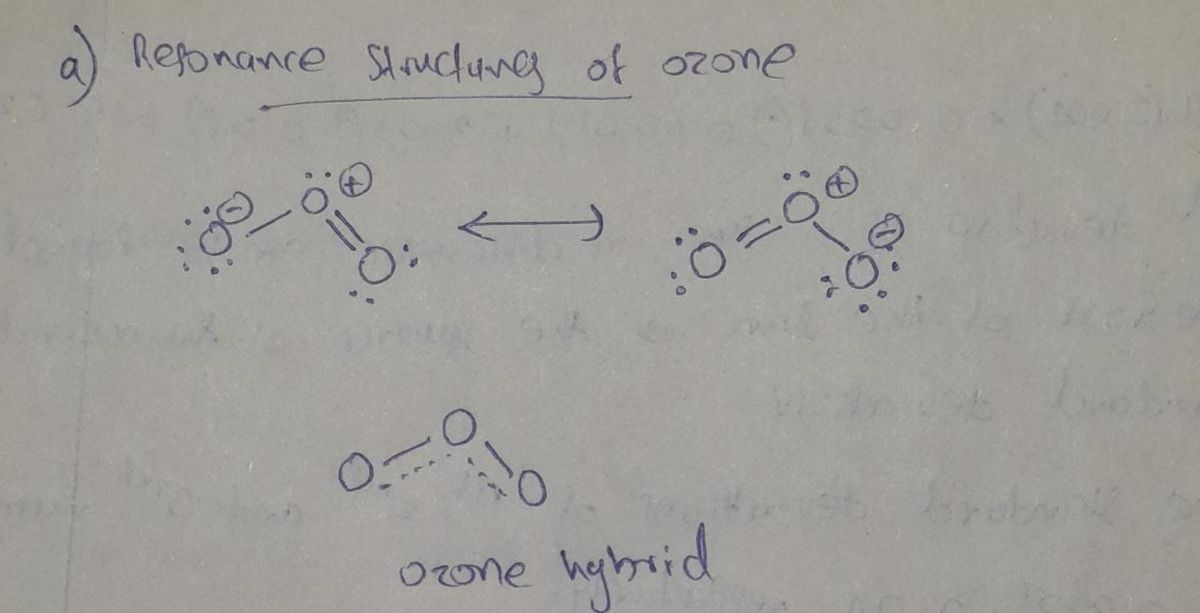 a) Resonance structures of ozone
O⊖ O⊕ O ⟷ O O⊕ O⊖
O O O
ozone hybrid